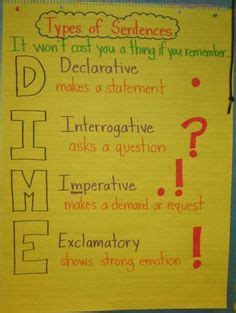 Types of Sentences
It won't cost you a thing if you remember
D Declarative .
makes a statement
I Interrogative ?
asks a question
M Imperative . !
makes a demand or request
E Exclamatory !
shows strong emotion